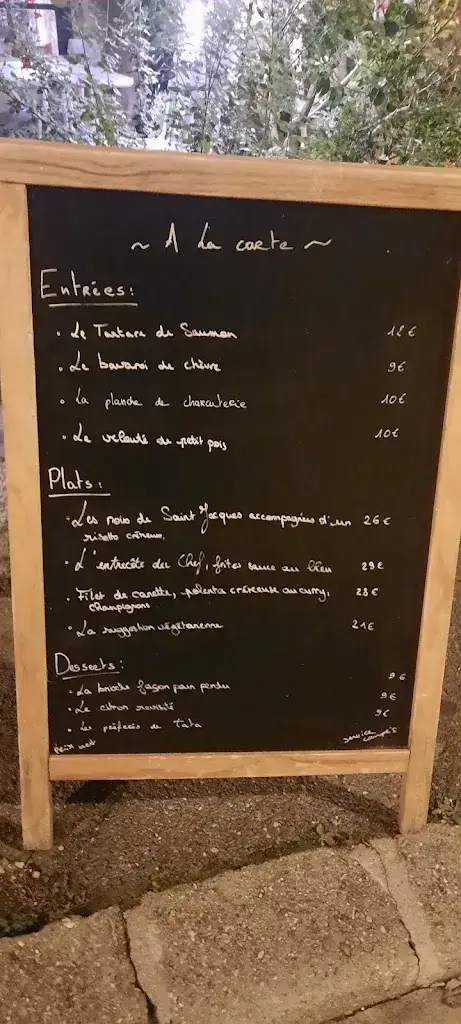 ~ A La carte ~
Entrées:
• Le Tartare de Saumon 12€
• Le bavaroi de chèvre 9€
• La planche de charcuterie 10€
• Le velouté de petit pois 10€
Plats:
• Les noix de Saint Jacques accompagnées d'un 26€
risotto crémeux,
• L'entrecôte du Chef, frites sauce au bleu 29€
• Filet de canette, polenta crémeuse au curry, 28€
champignons
• La suggestion végétarienne 21€
Desserts:
• La brioche façon pain perdu 9€
• Le citron revisité 9€
• Les préférés de Tata 9€
prix net
service compris